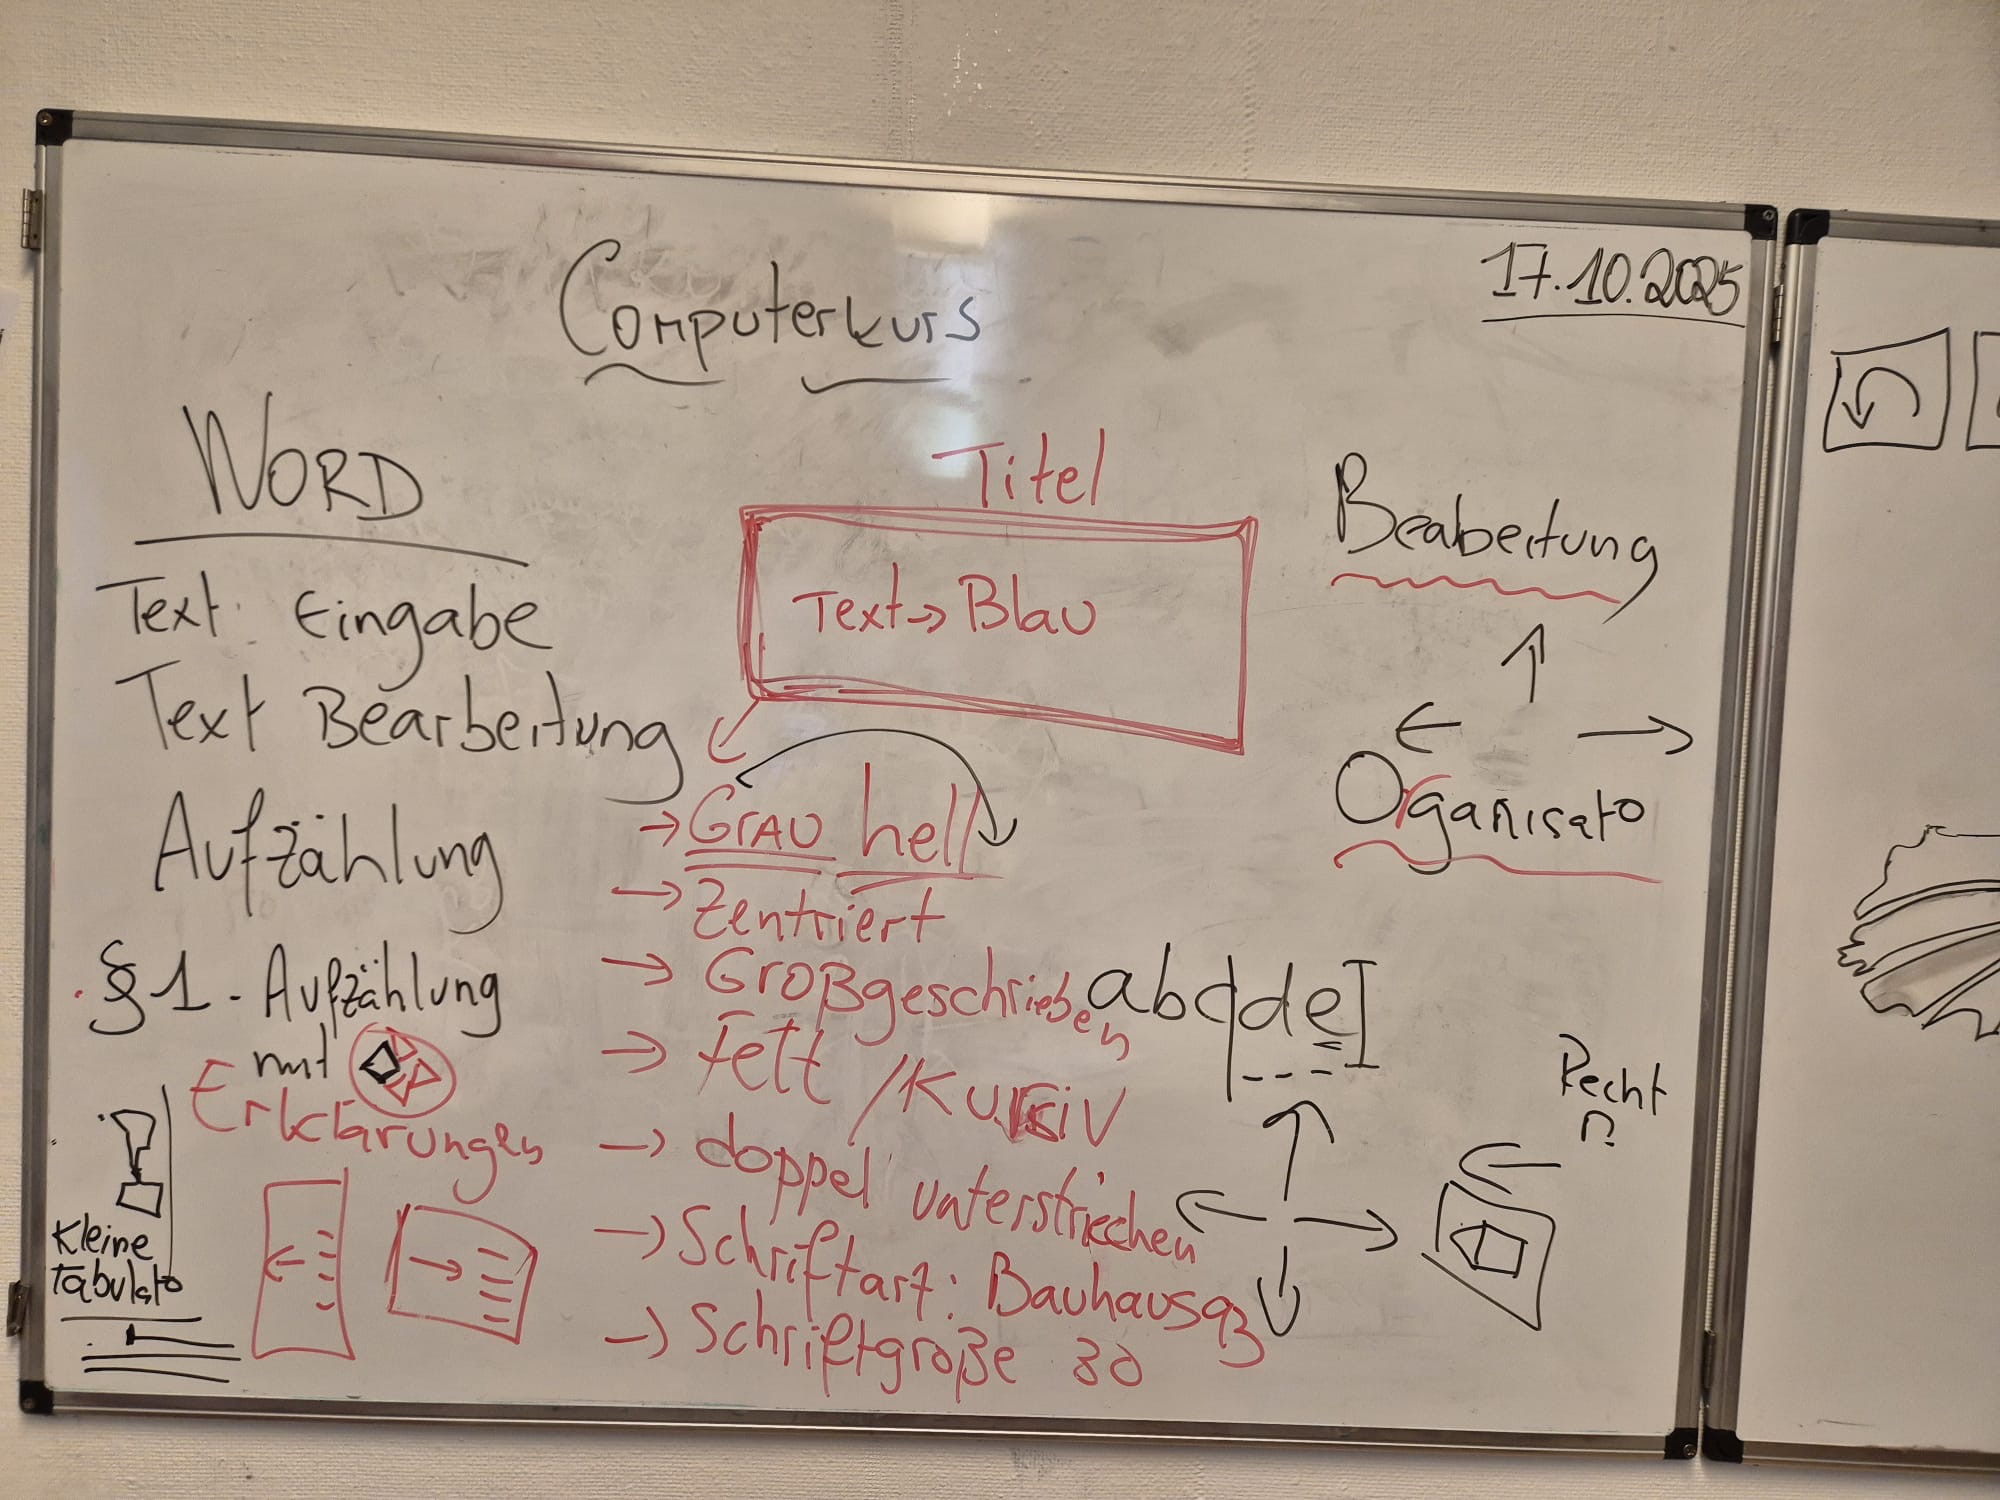 Computerkurs
17.10.2025
WORD
Text: Eingabe
Text Bearbeitung
Aufzählung
§1 - Aufzählung
mit
Erklärungen
Kleine
Tabulato
Titel
Text → Blau
→ Grau hell
→ Zentriert
→ Großgeschrieben
→ Fett / Kursiv
→ doppel unterstriechen
→ Schriftart: Bauhaus93
→ Schriftgröße 30
Beabeitung
Organisato
abcdde
Recht